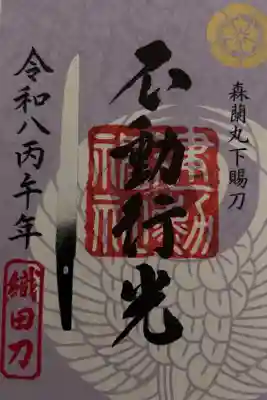 森蘭丸下賜刀
不動行光
建勲神社
令和八丙午年
織田刀